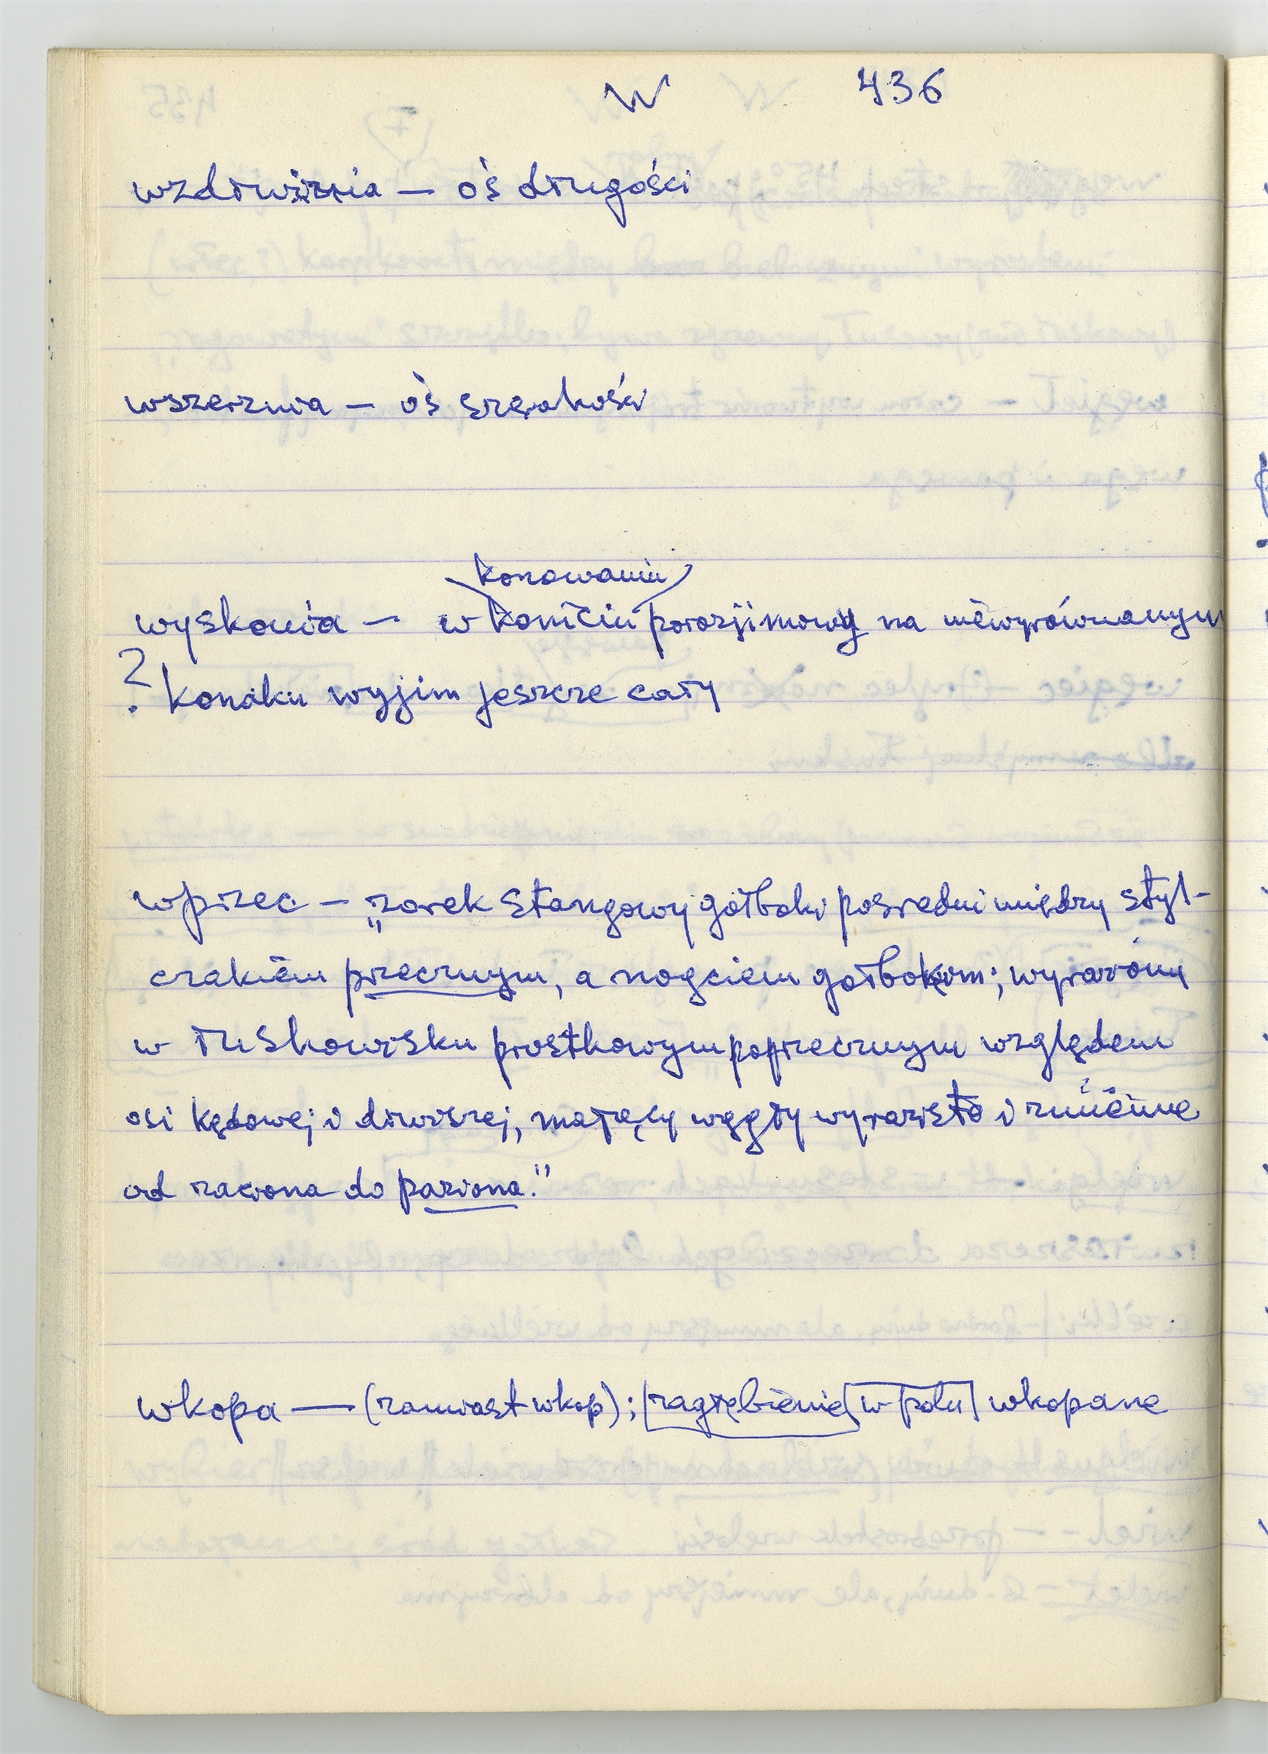 W 436
wzdłużnia — oś długości
wszerznia — oś szerokości
konowaniu
wyskonia — w porozjimowy na niewyrównanym
? konaku wyjim jeszcze cały
wprzec — „zorek stangowy gołboki pośredni między styl-
czakiem przecznym, a nogciem gołbokim; wyrażóny
w łuskowisku prostkowym poprzecznym względem
osi kędowej i dłuższej, mający węgły wyraziste i
od zawona do pazuona."
wkopa — (zamiast wkop); zagłębienie w polu wkopane